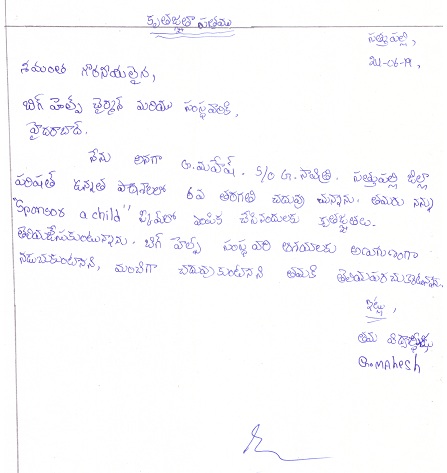 కృతజ్ఞతా పత్రము
సత్తుపల్లి,
24-06-19,
శ్రీమంత గౌరవనీయులైన,
బిగ్ హెల్ప్ చైర్మన్ మరియు సంస్థవారికి,
హైదరాబాద్.
నేను అనగా G.మహేష్. S/o G. సావిత్రి. సత్తుపల్లి జిల్లా
పరిషత్ ఉన్నత పాఠశాలలో 6వ తరగతి చదువు చున్నాను. తమరు నన్ను
"Sponsor a child" స్కీమ్‌లో ఎంపిక చేసినందులకు కృతజ్ఞతలు.
తెలియజేసుకుంటున్నాను. బిగ్ హెల్ప్ సంస్థ వారి ఆశయాలకు అనుగుణంగా
నడుచుకుంటానని, మంచిగా చదువుకుంటానని తమకి తెలియపరచుకుంటున్నాను.
ఇట్లు,
తమ విద్యార్థి,
G.MAhesh